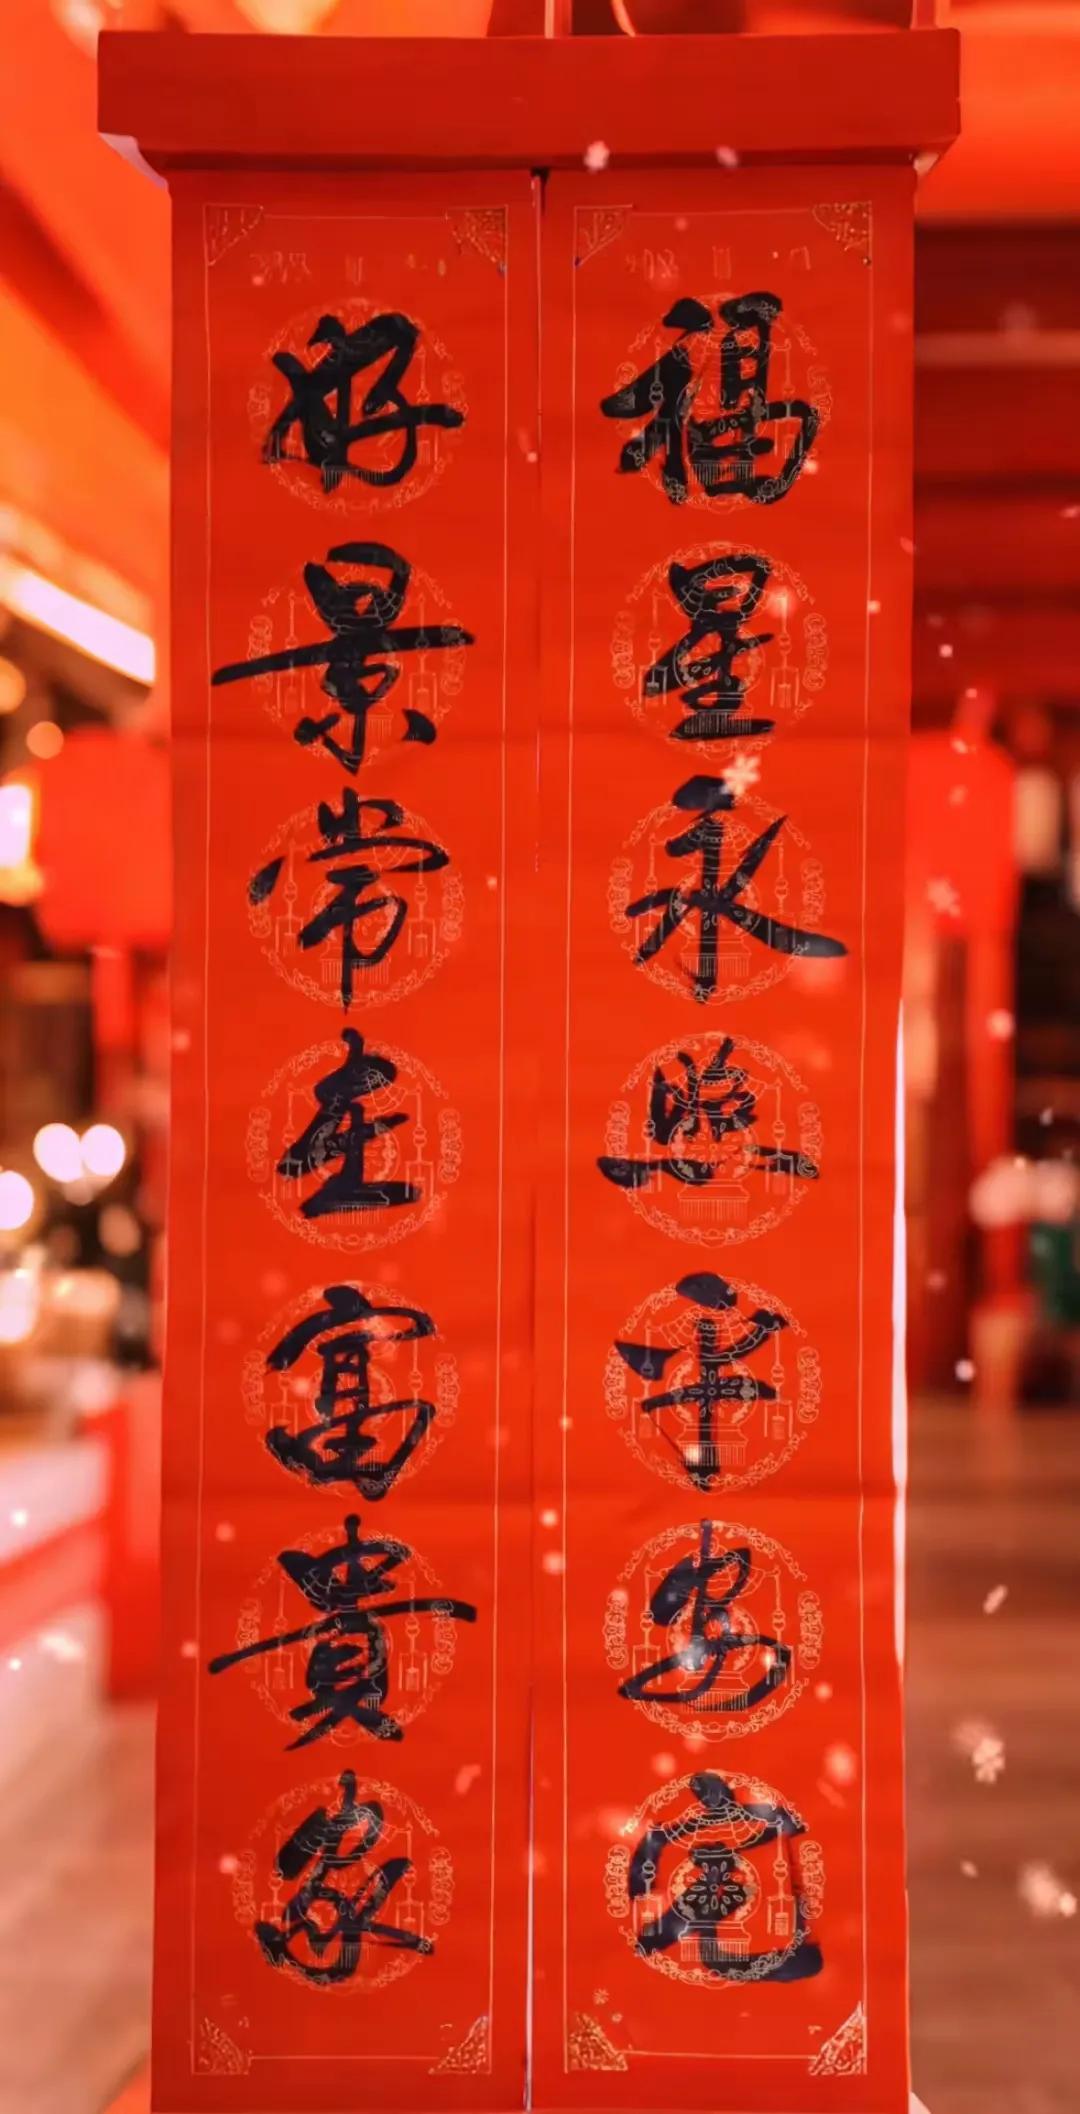 福星永照平安宅
好景常在富貴家